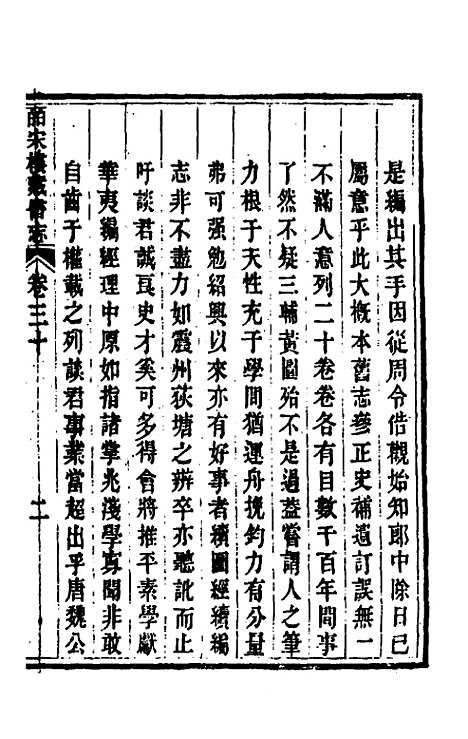 是編出其手因從周令借觀始知郎中除日已
屬意乎此大槪本舊志參正史補遺訂誤無一
不滿人意列二十卷卷各有目數千百年間事
了然不疑三輔黃圖殆不是過蓋嘗謂人之筆
力根于天性充于學問猶運舟挽鈞力有分量
弗可强勉紹興以來亦有好事者續圖經續編
志非不盡力如霞州荻塘之辨卒亦聽訛而止
吁談君誠良史才矣可多得會將推平素學獻
華夷編經理中原如指諸掌兆淺學寡聞非敢
自齒于權載之列談君事業當超出乎唐魏公
皕宋樓藏書志
卷三十
二